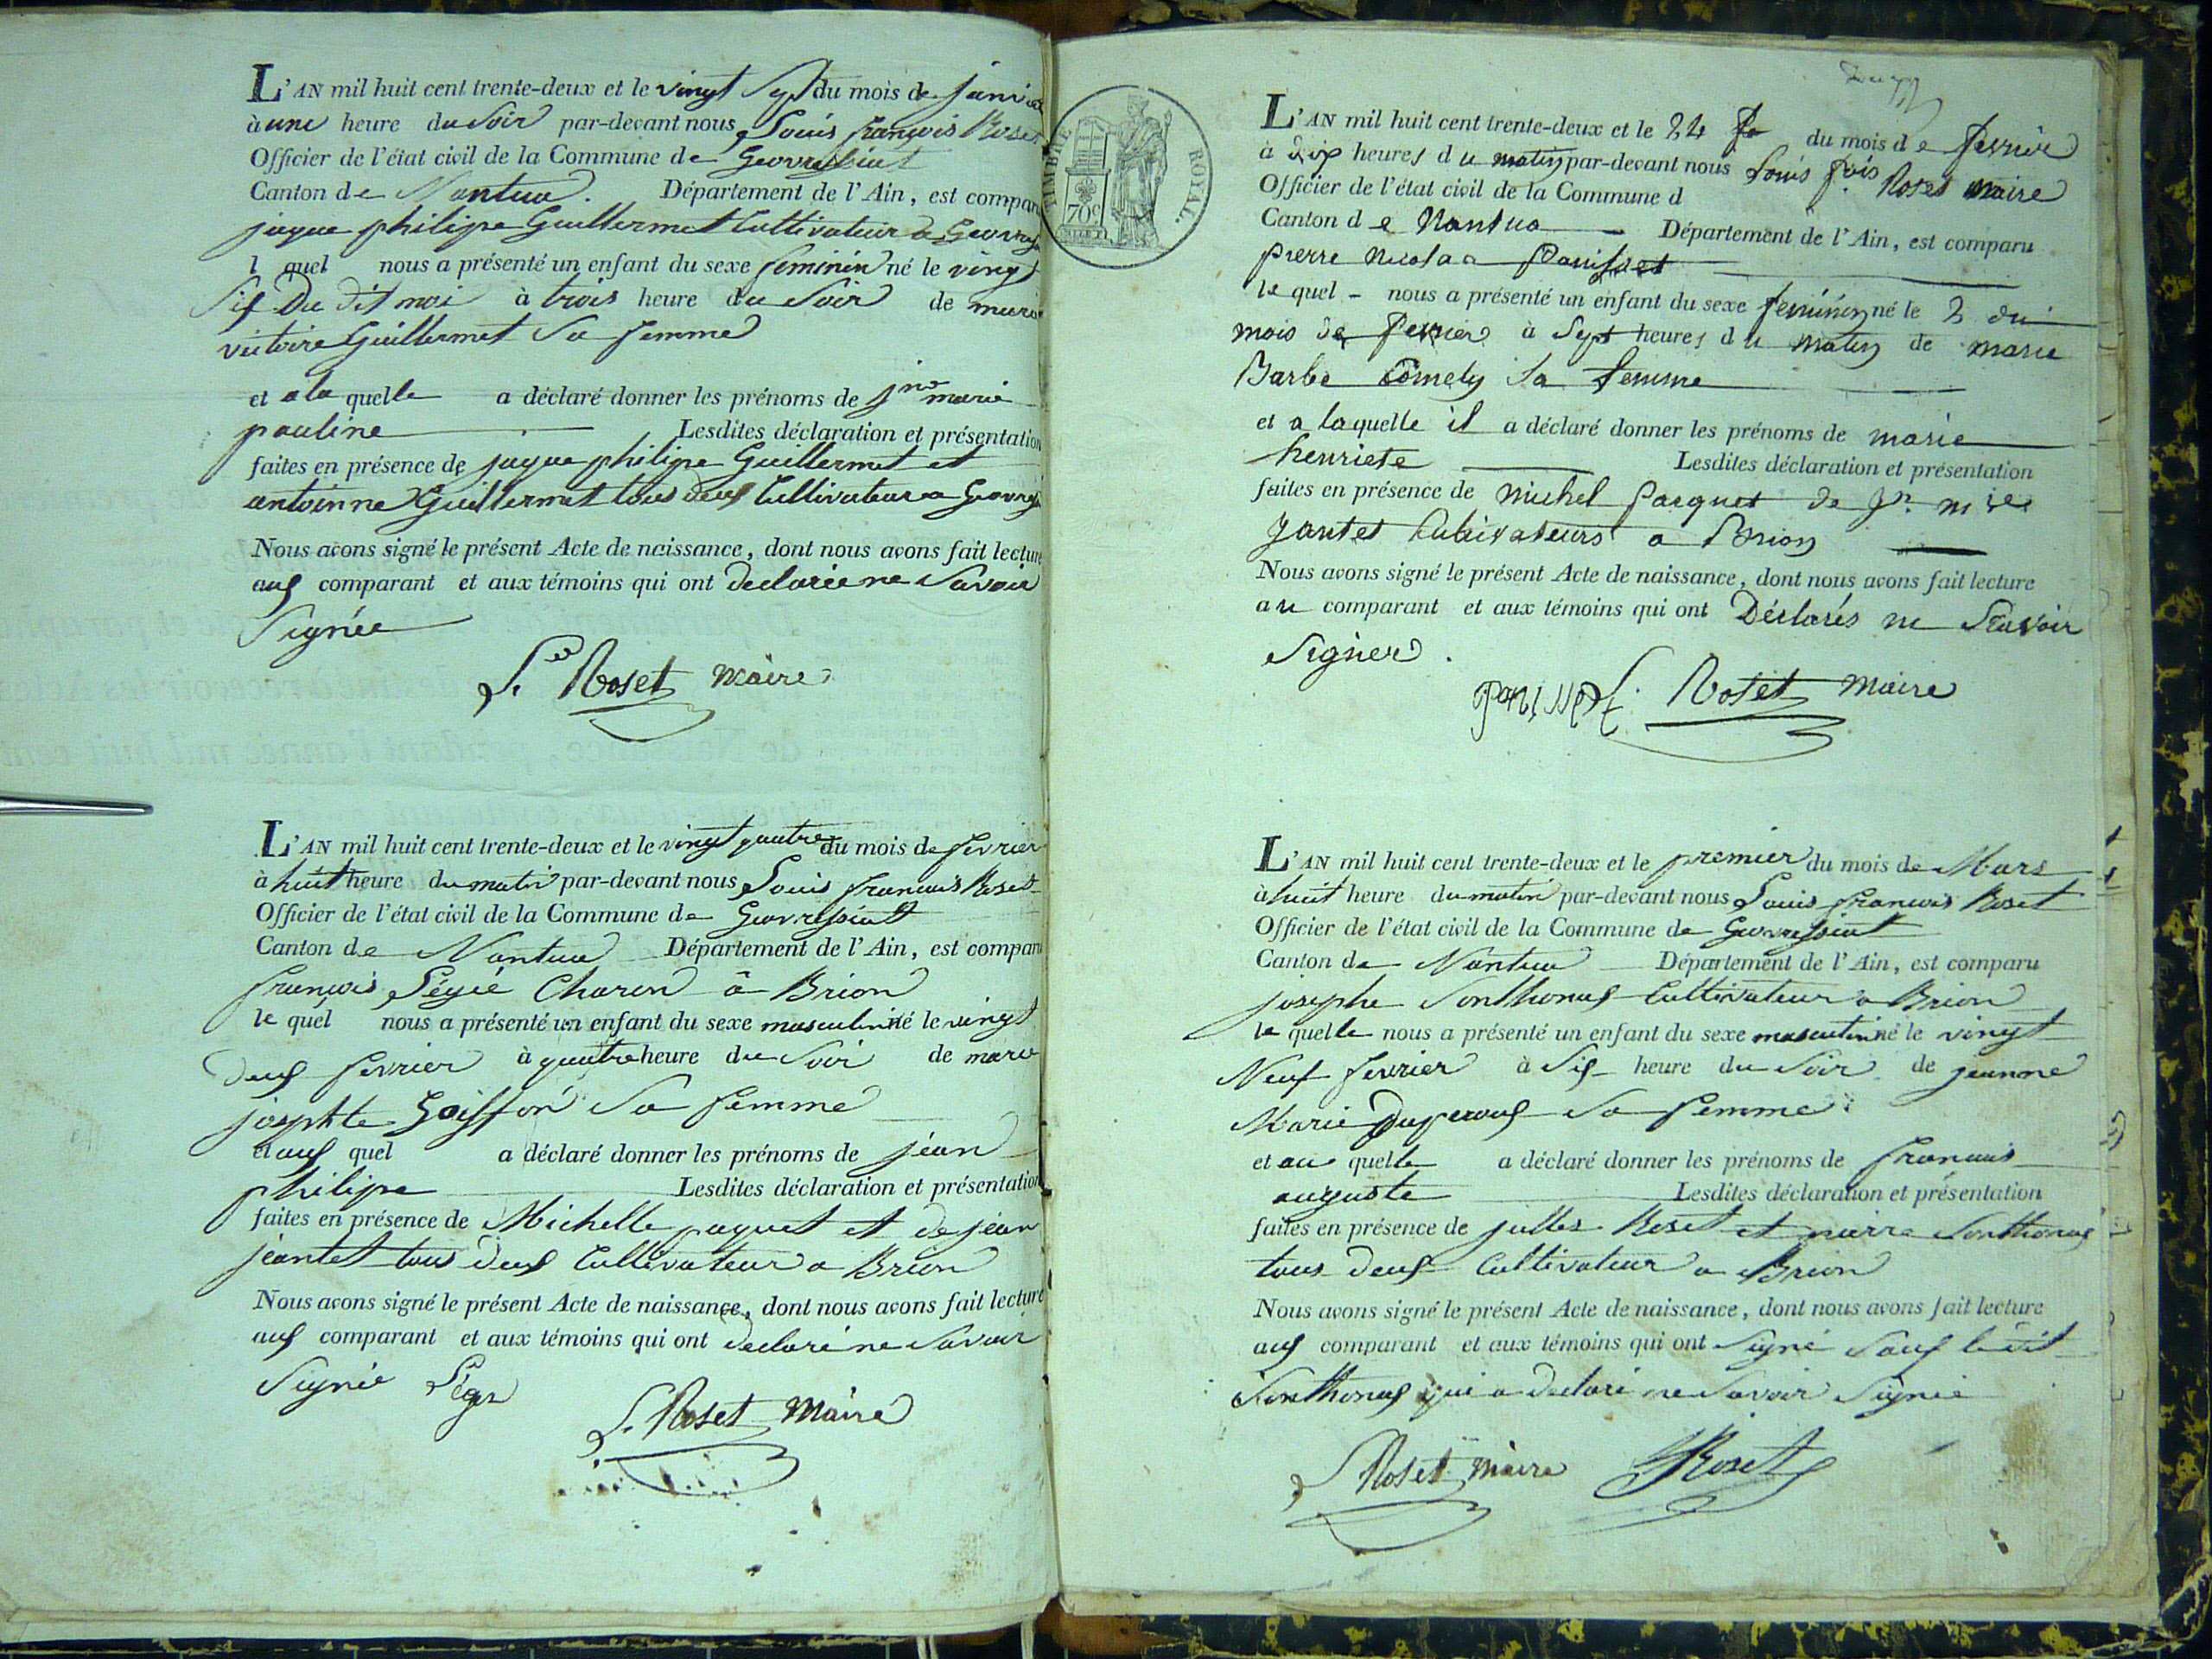 L'AN mil huit cent trente-deux et le vingt sept du mois de janvier
à une heure du soir par-devant nous Louis françois Roset
Officier de l'état civil de la Commune de Geovressiat
Canton de Nantua. Département de l'Ain, est comparu
jaque philipe Guillermet Cultivateur a Geovressiat
l quel nous a présenté un enfant du sexe feminin né le vingt
six du dit moi à trois heure du soir de marie
victoire Guillermet Sa femme
et a la quelle a déclaré donner les prénoms de jne marie
pauline Lesdites déclaration et présentation
faites en présence de jaque philipe Guillermet et
antoinne Guillermet tous deux Cultivateur a Geovressiat
Nous avons signé le présent Acte de naissance, dont nous avons fait lecture
aux comparant et aux témoins qui ont declaree ne Savoir
Signée
L. Roset maire
L'AN mil huit cent trente-deux et le vingt quatre du mois de fevrier
à huit heure du matin par-devant nous Louis francois Roset
Officier de l'état civil de la Commune de Geovressiat
Canton de Nantua Département de l'Ain, est comparu
francois Légié Charon à Brion
le quel nous a présenté un enfant du sexe masculin né le vingt
deux fevrier à quatre heure du Soir de marie
josephte Goiffon Sa femme
et aux quel a déclaré donner les prénoms de jean
philipe Lesdites déclaration et présentation
faites en présence de Michelle paquet et de jean
jeantet tous deux Cultivateur a Brion
Nous avons signé le présent Acte de naissance, dont nous avons fait lecture
aux comparant et aux témoins qui ont declaré ne Savoir
Signée Léger
L. Roset Maire
TIMBRE ROYAL.
70c
L'AN mil huit cent trente-deux et le 24 du mois de fevrier
à dix heures du matin par-devant nous Louis fçois Roset maire
Officier de l'état civil de la Commune d
Canton de Nantua Département de l'Ain, est comparu
pierre Nicolas Panisset
le quel nous a présenté un enfant du sexe feminin né le 2 du
mois de fevrier à Sept heures du matin de marie
Barbe Comely Sa femme
et a laquelle il a déclaré donner les prénoms de marie
henriete Lesdites déclaration et présentation
faites en présence de michel Paquet de Jn mie
Jantet Cultivateurs a Brion
Nous avons signé le présent Acte de naissance, dont nous avons fait lecture
au comparant et aux témoins qui ont Déclarés ne Scavoir
Signer.
Panisset L. Roset Maire
L'AN mil huit cent trente-deux et le premier du mois de Mars
à huit heure du matin par-devant nous Louis francois Roset
Officier de l'état civil de la Commune de Geovressiat
Canton de Nantua Département de l'Ain, est comparu
josephe Sonthonax Cultivateur a Brion
le quelle nous a présenté un enfant du sexe masculin né le vingt
Neuf fevrier à Six heure du Soir de jeanne
Marie Duperoux Sa femme
et au quelle a déclaré donner les prénoms de francois
auguste Lesdites déclaration et présentation
faites en présence de julles Roset et pierre Sonthonax
tous deux Cultivateur a Brion
Nous avons signé le présent Acte de naissance, dont nous avons fait lecture
aux comparant et aux témoins qui ont Signé Sauf le dit
Sonthonax qui a declaré ne Savoir Signée
L Roset maire J Roset